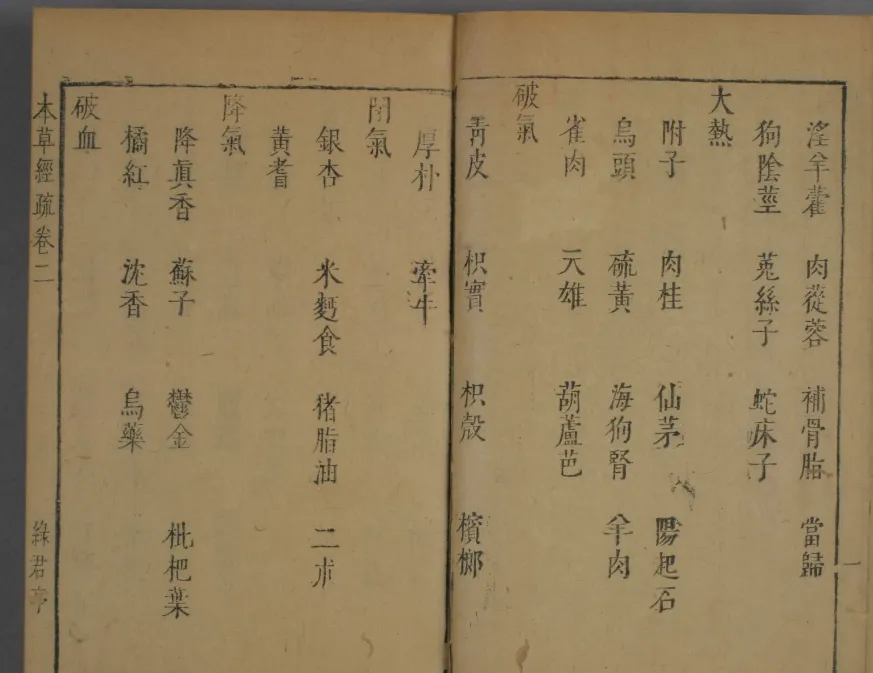 淫羊藿 肉蓯蓉 補骨脂 當歸
狗陰莖 菟絲子 蛇床子
大熱
附子 肉桂 仙茅 陽起石
烏頭 硫黃 海狗腎 羊肉
雀肉 天雄 葫蘆芭
破氣
靑皮 枳實 枳殼 檳榔
厚朴 牽牛
閉氣
銀杏 米麪食 猪脂油 二朮
黃耆
降氣
降眞香 蘇子 鬱金 枇杷葉
橘紅 沈香 烏藥
破血
本草經疏卷二
綠君亭
一